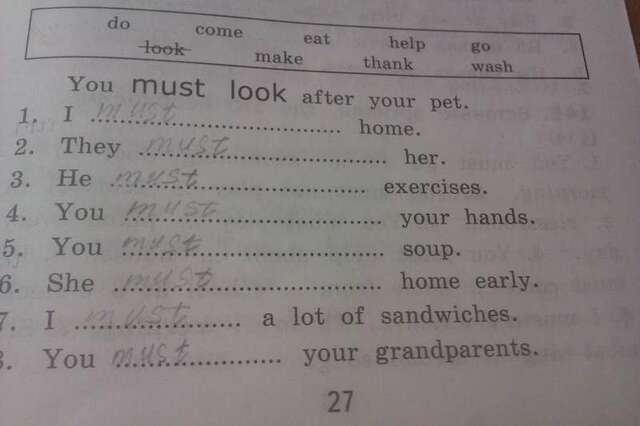 do come eat help go
look make thank wash
You must look after your pet.
1. I must home.
2. They must her.
3. He must exercises.
4. You must your hands.
5. You must soup.
6. She must home early.
7. I must a lot of sandwiches.
8. You must your grandparents.
27